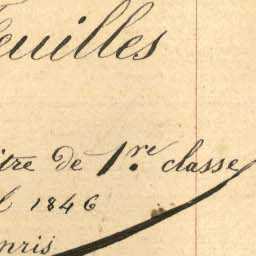 Feuilles
itre de 1.re classe
l 1846
nris